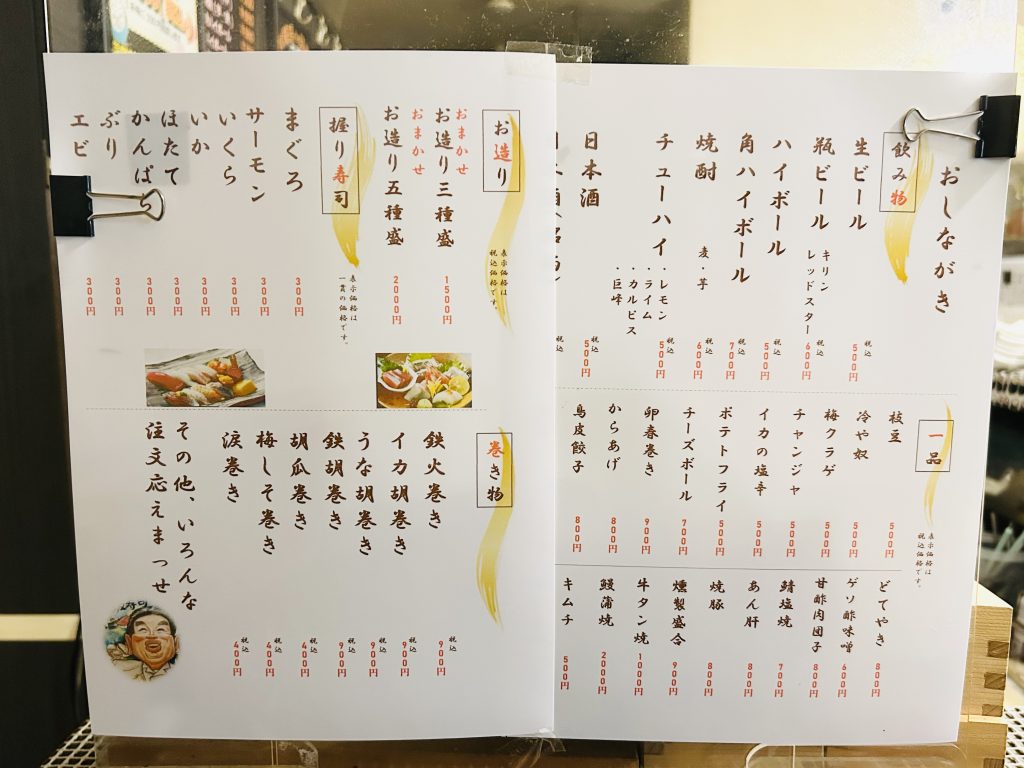 おしながき
飲み物
生ビール
税込
500円
瓶ビール
キリン
レッドスター
税込
600円
ハイボール
税込
500円
角ハイボール
税込
700円
焼酎
麦・芋
税込
600円
チューハイ
・レモン
・ライム
・カルピス
・巨峰
税込
500円
日本酒
税込
500円
税込
一品
表示価格は
税込価格です。
枝豆
500円
冷や奴
500円
梅クラゲ
500円
チャンジャ
500円
イカの塩辛
500円
ポテトフライ
500円
チーズボール
700円
卵春巻き
900円
からあげ
800円
鳥皮餃子
800円
どてやき
800円
ゲソ酢味噌
600円
甘酢肉団子
800円
鯖塩焼
700円
あん肝
800円
焼豚
800円
燻製盛合
900円
牛タン焼
1000円
鰻蒲焼
2000円
キムチ
500円
お造り
表示価格は
税込価格です。
おまかせ
お造り三種盛
1500円
おまかせ
お造り五種盛
2000円
握り寿司
表示価格は
一貫の価格です。
まぐろ
300円
サーモン
300円
いくら
300円
いか
300円
ほたて
300円
かんぱち
300円
ぶり
300円
エビ
300円
巻き物
鉄火巻き
税込
900円
イカ胡巻き
税込
900円
うな胡巻き
税込
900円
鉄胡巻き
税込
900円
胡瓜巻き
税込
400円
梅しそ巻き
税込
400円
涙巻き
税込
400円
その他、いろんな
注文応えまっせ